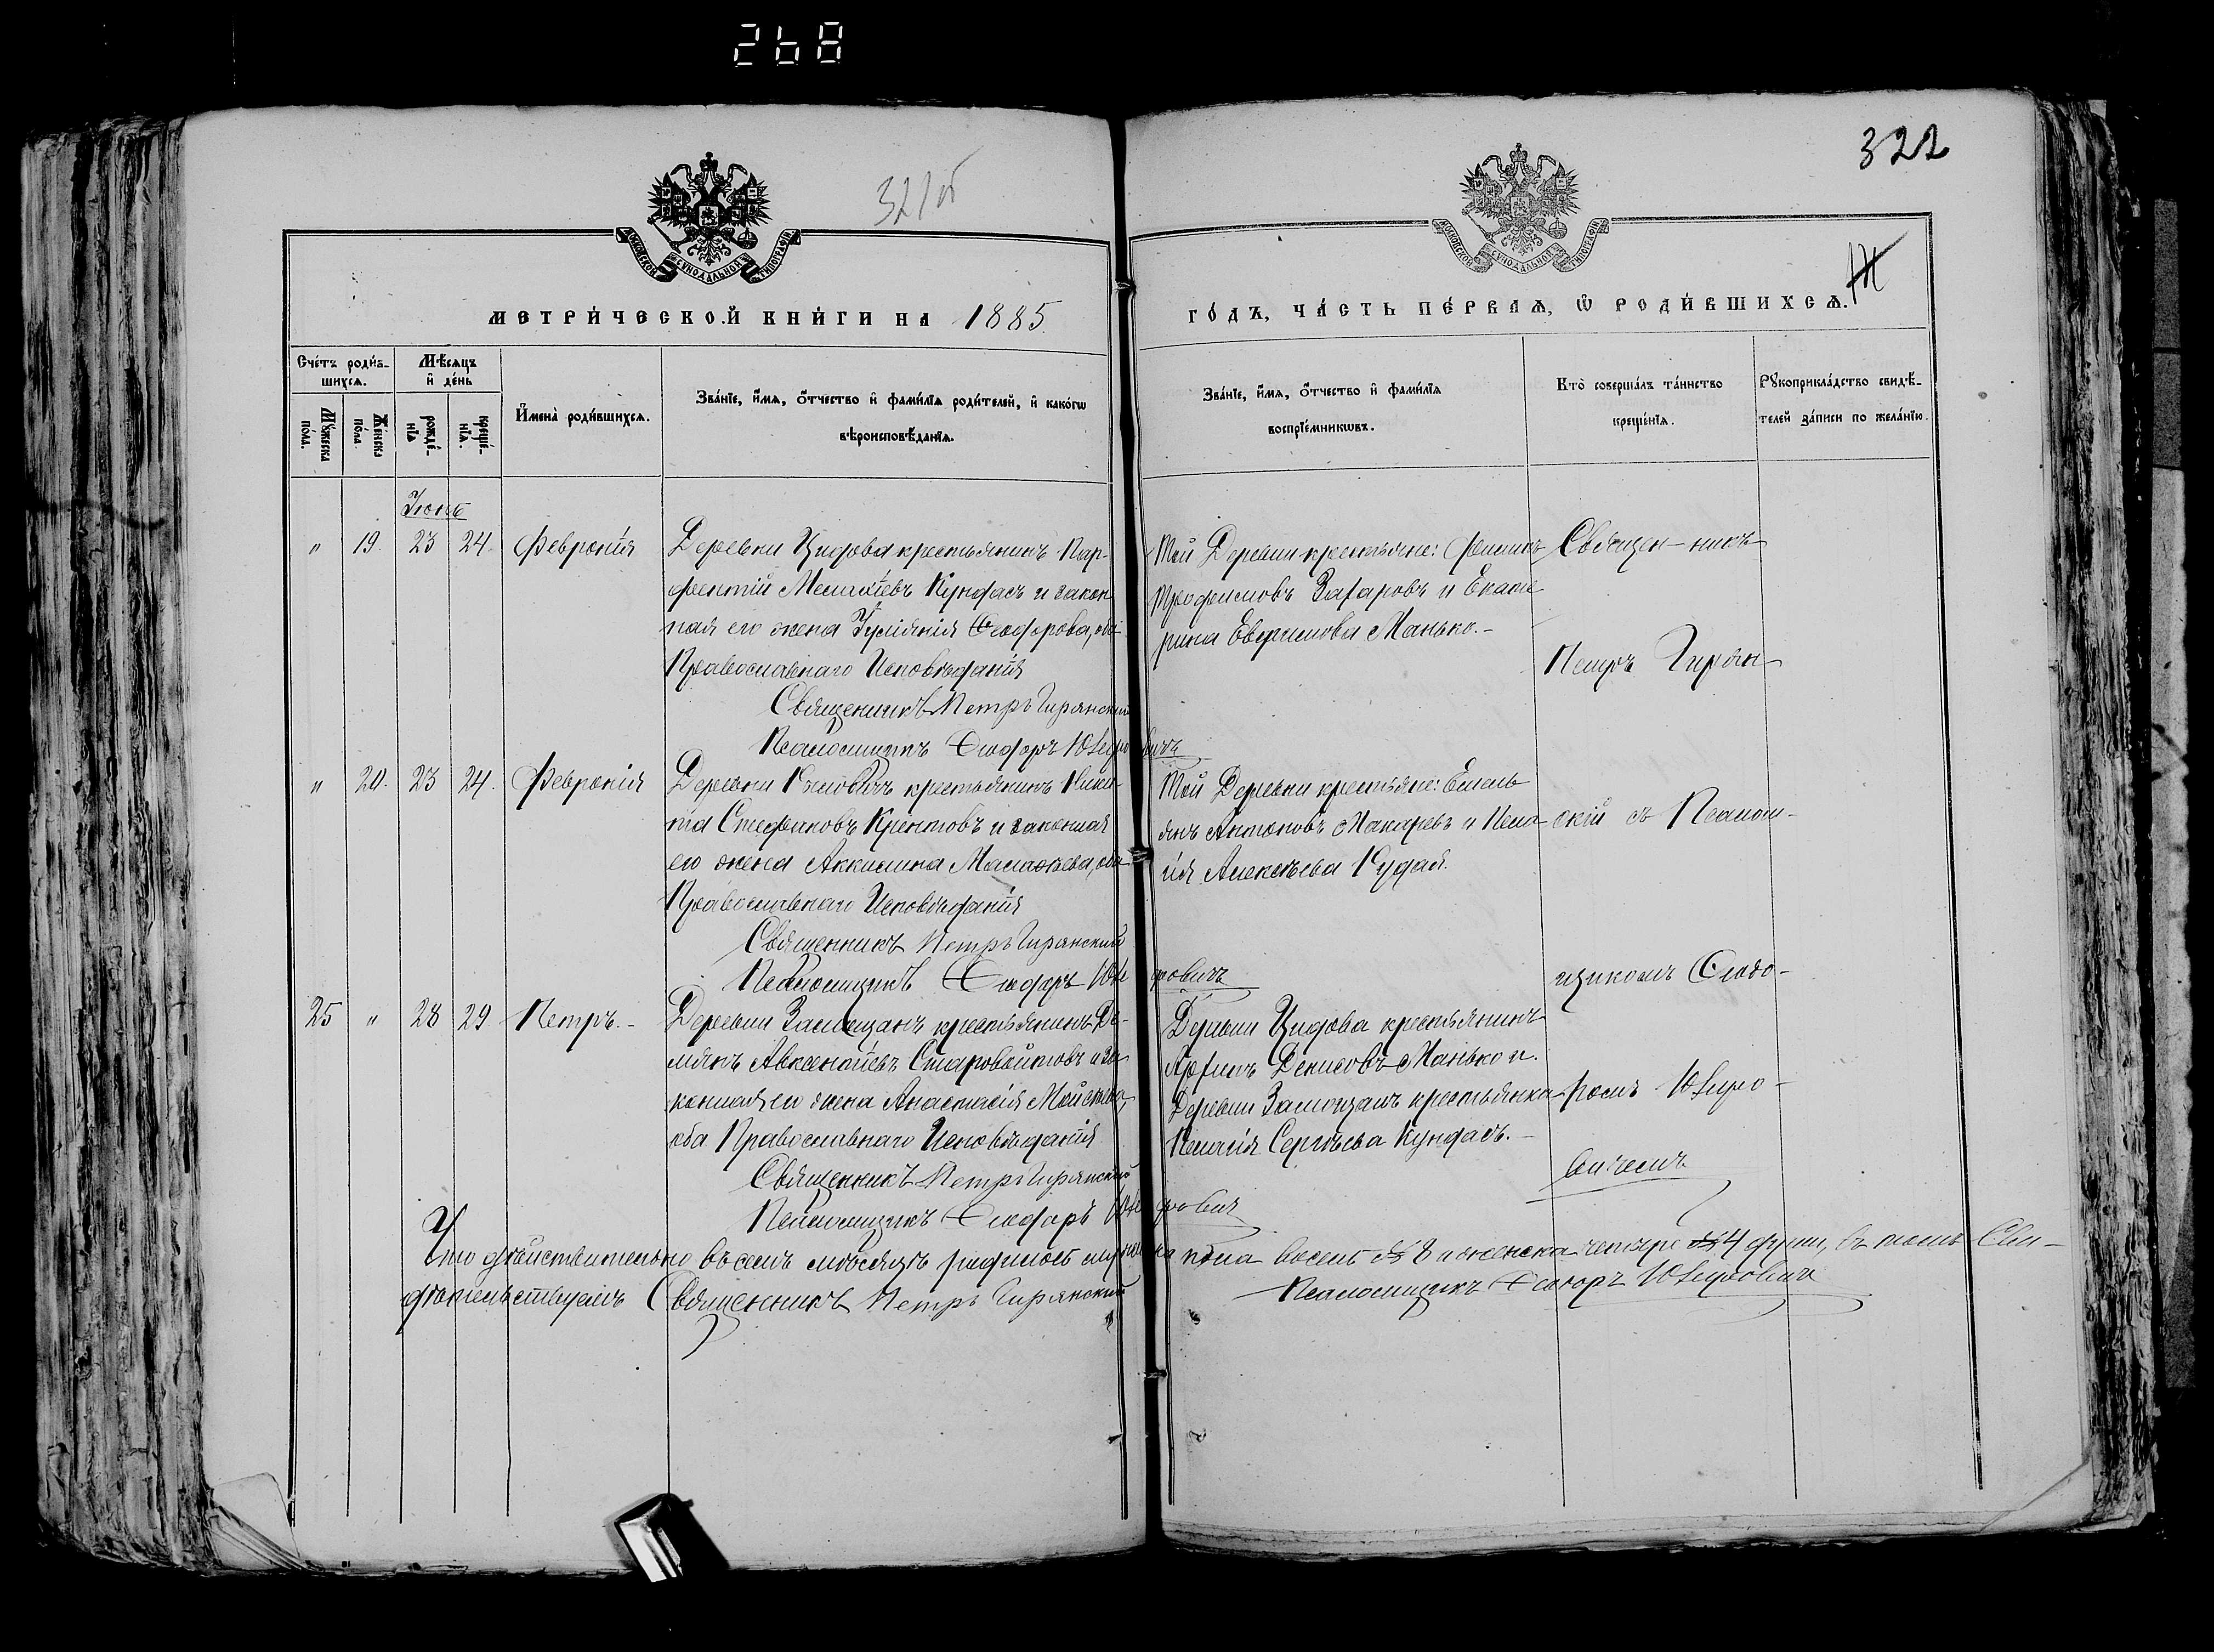 268
321об
322
МОСКОВСКОЙ СѴНОДАЛЬНОЙ ТИПОГРАФІИ
МОСКОВСКОЙ СѴНОДАЛЬНОЙ ТИПОГРАФІИ
МЕТРИ́ЧЕСКОЙ КНИ́ГИ НА 1885
ГО́ДЪ, ЧА́СТЬ ПЕ́РВАЯ, Ѿ РОДИ́ВШИХСЯ.
Сче́тъ роди́в-
шихся.
Мѣсяцъ
и де́нь
Мꙋжеска по́ла.
Же́нска по́ла
рожде́-
нїа
креще́-
нїа.
И҆мена̀ роди́вшихся.
Зва́нїе, и҆́мя, ѻ҆́тчество и҆ фами́лїя роди́телей, и҆ како́гѡ
вѣроисповѣ́данїя.
Зва́нїе, и҆́мя, ѻ҆́тчество и҆ фами́лїя
воспрїе́мникѡвъ.
Кто̀ соверша́лъ та́инство
креще́нїя.
Рꙋкоприкла́дство свидѣ́-
телей за́писи по жела́нїю.
Іюнь
" 19. 23 24. Февронія
Деревни Цидова крестьянинъ Пар-
фентій Кундасъ и закон
ная его жена Іуліянія Ѳеодорова, оба
Православнаго Исповѣданія
Священникъ Петръ Гирянскій
Псаломщикъ Ѳеодоръ
Той Деревни крестьяне: Филипъ
Трофимовъ Захаровъ и Екате
рина Евфимова Манько.-
Священ-никъ
Петръ Гирян-
" 20. 23 24. Февронія
Деревни крестьянинъ Ники-
та Стефановъ Крентовъ и законная
его жена Аккилина оба
Православнаго Исповѣданія
Священникъ Петръ Гирянскій
Псаломщикъ Ѳеодоръ
Той Деревни крестьяне: Емель
янъ Антоновъ Макаревъ и Пела-
гія Алексѣева Кудай.
скій съ Псалом-
щикомъ Ѳеодо-
25 " 28 29 Петръ.-
Деревни Замощанъ крестьянинъ Де-
міянъ Авксентіевъ Старовойтовъ и за-
конная его жена Анастасія Моисеева,
оба Православнаго Исповѣданія
Священникъ Петръ Гирянскій
Псаломщикъ Ѳеодоръ
Деревни Цидова крестьянинъ
Денисовъ Манько и
Деревни Замощанъ крестьянка
Пелагія Сергѣева Кундасъ.-
ромъ
вичемъ
Что дѣйствительно въ семъ мѣсяцѣ родилось мужеска пола восемь 8 и женска четыре 4 души, въ томъ Сви-
дѣтельствуемъ Священникъ Петръ Гирянскій
Псаломщикъ Ѳеодоръ